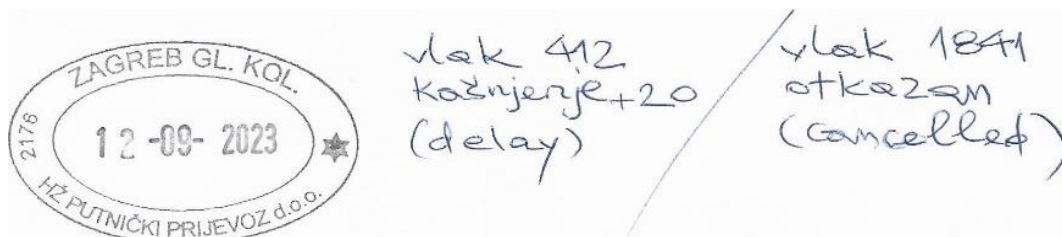 ZAGREB GL. KOL.
2176
12-09-2023
HŽ PUTNIČKI PRIJEVOZ d.o.o.
vlak 412
kašnjenje +20
(delay)
vlak 1841
otkazan
(cancelled)